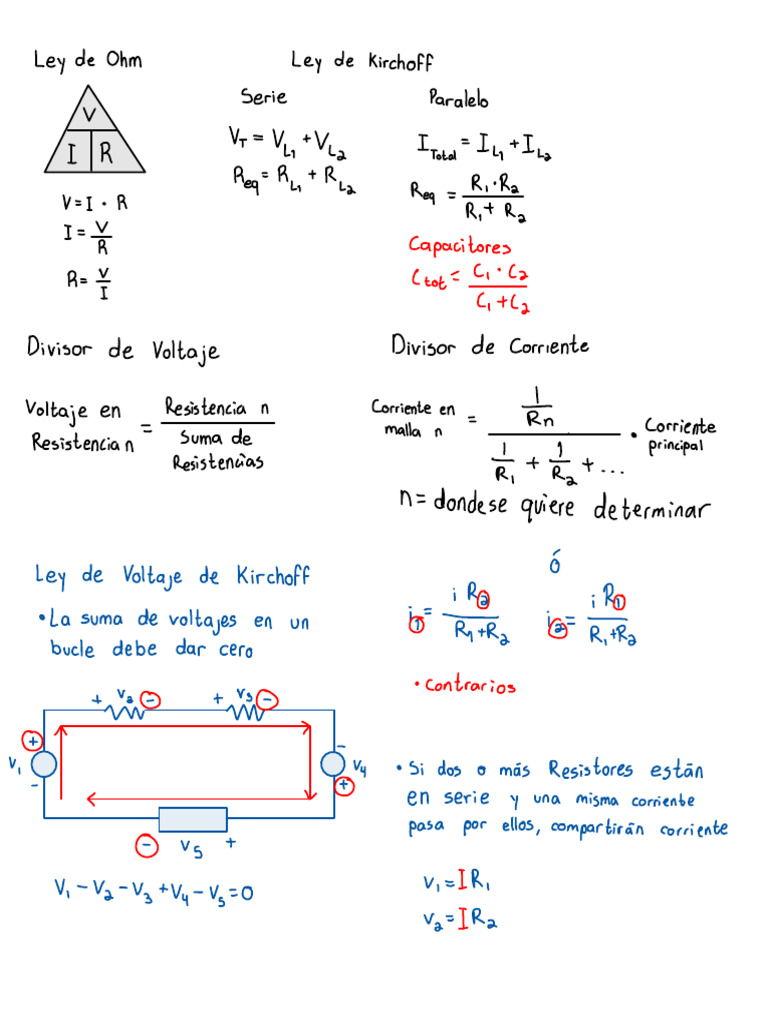 Ley de Ohm
V
I R
V = I · R
I = V/R
R = V/I
Ley de Kirchoff
Serie
V_T = V_L1 + V_L2
R_eq = R_L1 + R_L2
Paralelo
I_Total = I_L1 + I_L2
R_eq = R_1 · R_2 / R_1 + R_2
Capacitores
C_tot = C_1 · C_2 / C_1 + C_2
Divisor de Voltaje
Voltaje en Resistencia n = Resistencia n / Suma de Resistencias
Divisor de Corriente
Corriente en malla n = 1/Rn / 1/R_1 + 1/R_2 + ... · Corriente principal
n = donde se quiere determinar
Ley de Voltaje de Kirchoff
• La suma de voltajes en un
bucle debe dar cero
+ V_2 - + V_3 -
+ -
V_1 V_4
- +
- V_5 +
V_1 - V_2 - V_3 + V_4 - V_5 = 0
ó
i_1 = i R_2 / R_1 + R_2 i_2 = i R_1 / R_1 + R_2
• Contrarios
• Si dos o más Resistores están
en serie y una misma corriente
pasa por ellos, compartirán corriente
V_1 = I R_1
V_2 = I R_2